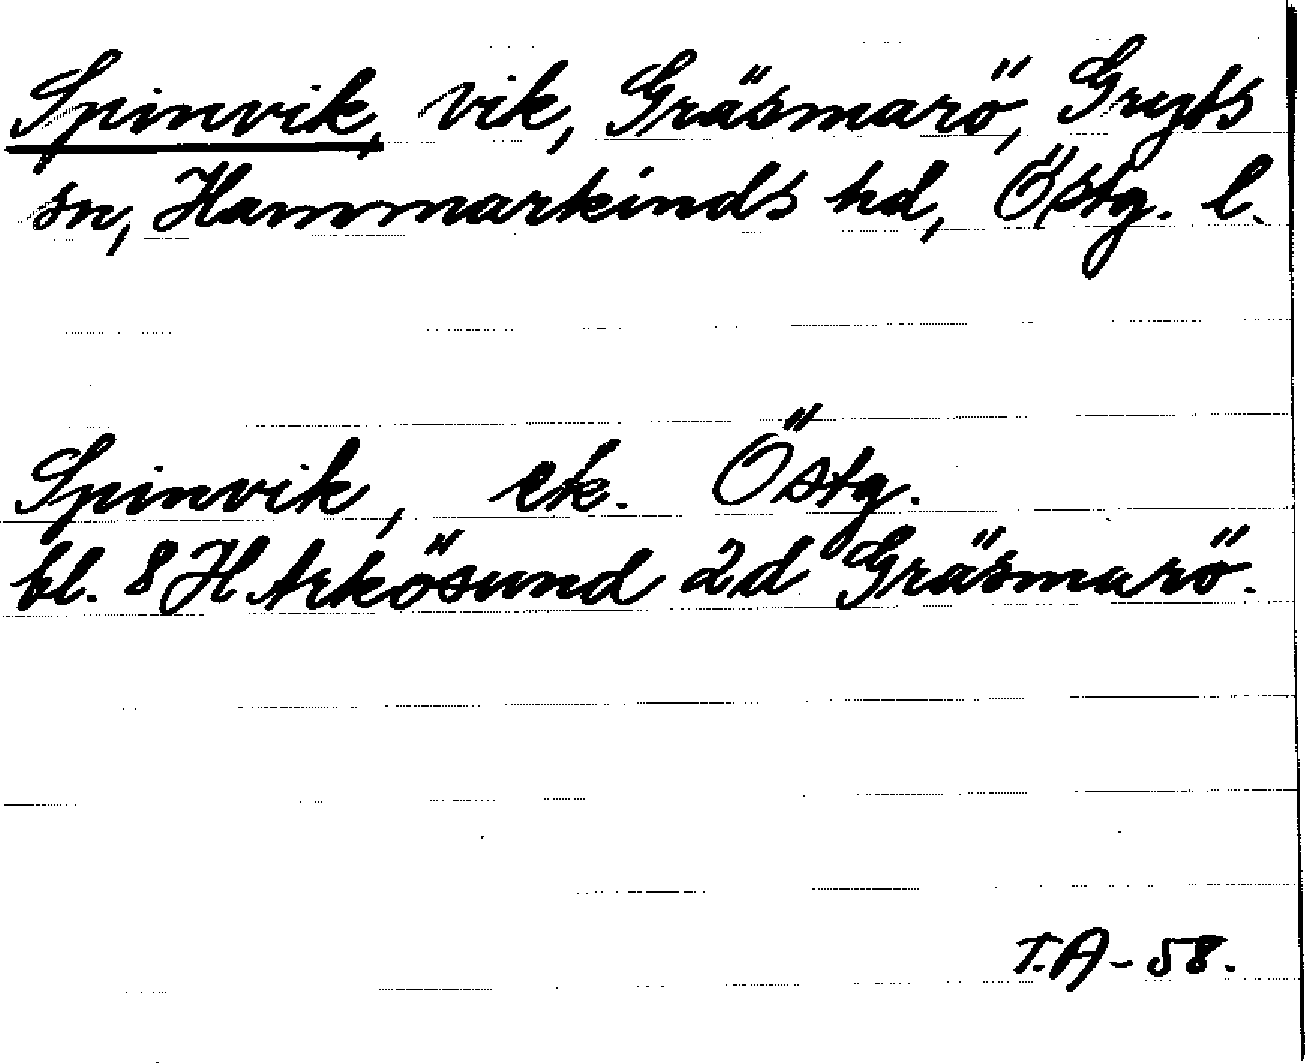 Spinvik, vik, Gräsmarö, Gryts
sn, Hammarkinds hd, Östg. l.
Spinvik, ek. Östg.
bl. 8H Arkösund 2d Gräsmarö.
T.A-58.